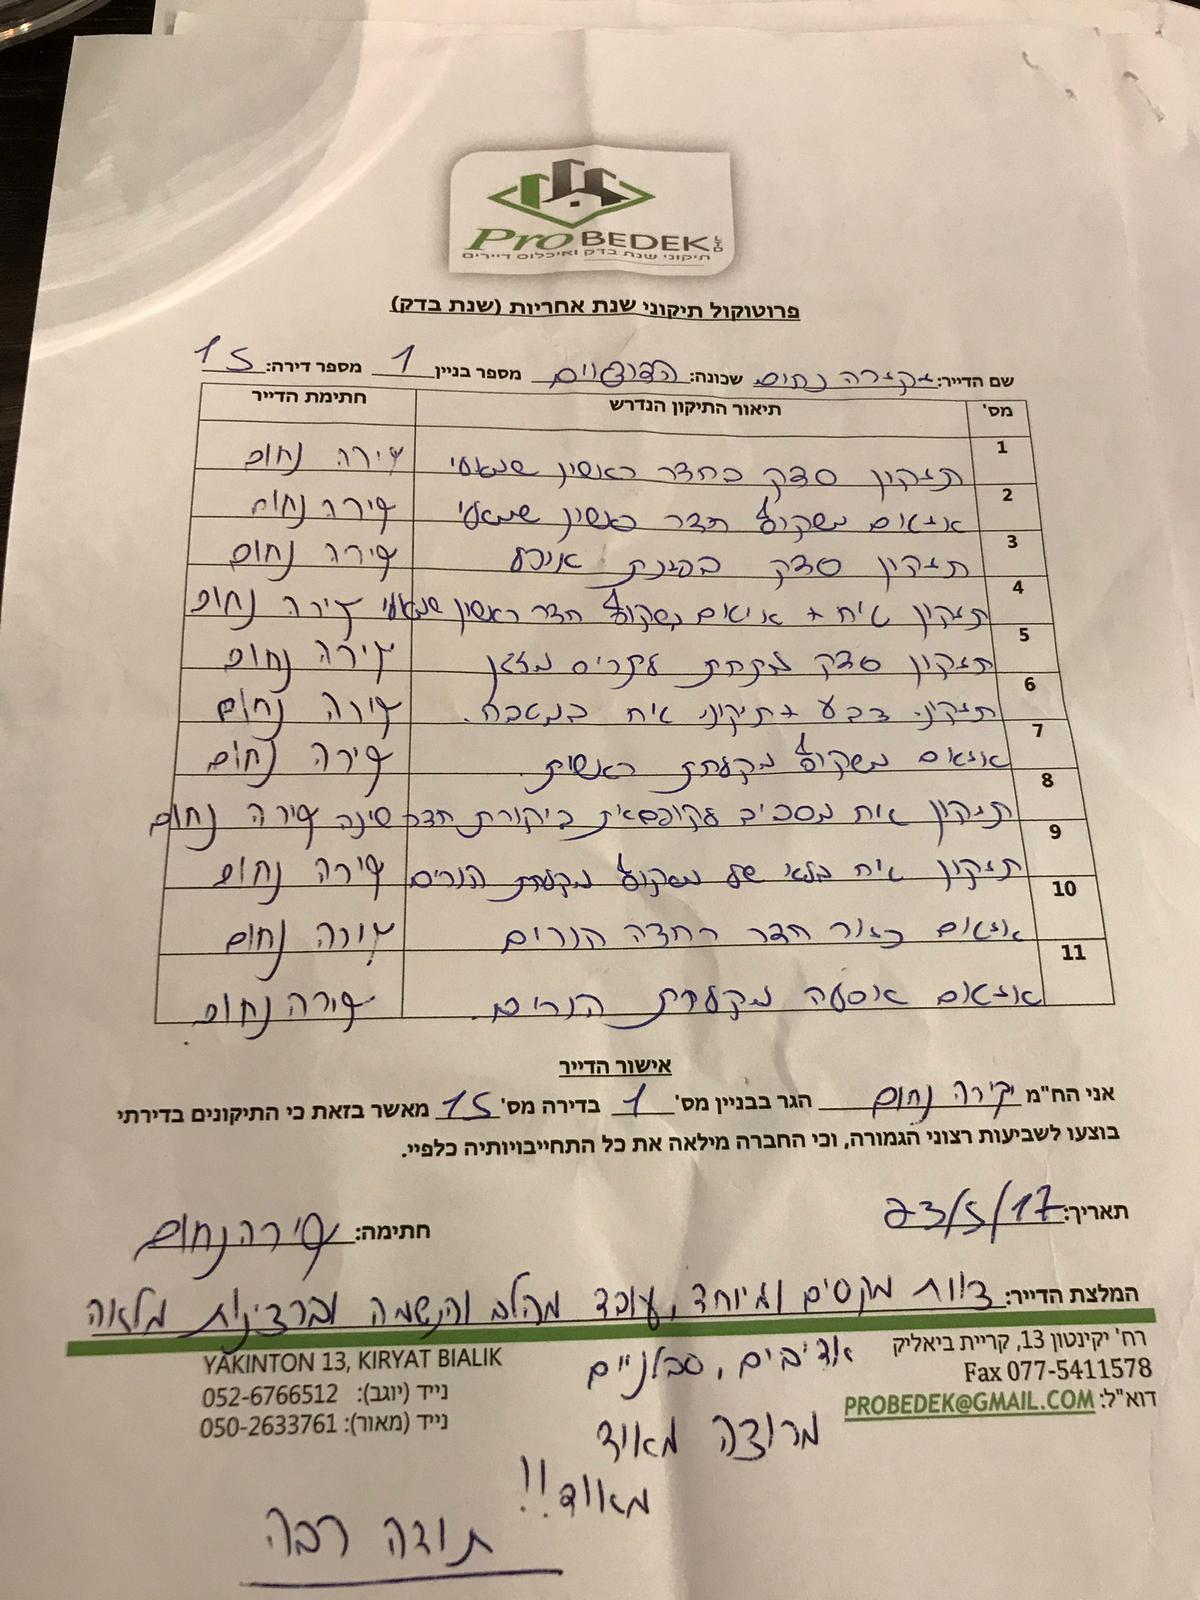 Pro BEDEK LTD
תיקוני שנת בדק ואיכלוס דיירים
פרוטוקול תיקוני שנת אחריות (שנת בדק)
שם הדייר: נחום שכונה: מספר בניין 1 מספר דירה: 15
מס' תיאור התיקון הנדרש חתימת הדייר
1 תיקון סדק בחדר ראשון שמאלי שירה נחום
2 איטום משקוף חדר ראשון שמאלי שירה נחום
3 תיקון סדק בפינת אוכל שירה נחום
4 תיקון טיח + איטום משקוף חדר ראשון שמאלי שירה נחום
5 תיקון סדק מתחת מזגן שירה נחום
6 תיקוני צבע + תיקוני טיח במטבח. שירה נחום
7 איטום משקוף מקלחת ראשית. שירה נחום
8 תיקון טיח מסביב לקופסאת ביקורת חדר שינה שירה נחום
9 תיקון טיח של משקוף מקלחת הורים שירה נחום
10 איטום חדר הורים שירה נחום
11 איטום אסלה מקלחת הורים. שירה נחום
אישור הדייר
אני הח"מ שירה נחום הגר בבניין מס' 1 בדירה מס' 15 מאשר בזאת כי התיקונים בדירתי
בוצעו לשביעות רצוני הגמורה, וכי החברה מילאה את כל התחייבויותיה כלפיי.
תאריך: 23/5/17 חתימה: שירה נחום
המלצת הדייר: צוות מקסים ומיוחד, עובד מהלב והנשמה וברצינות מלאה
אדיבים, סבלניים
מרוצה מאוד
מאווד!!
תודה רבה
רח' יקינטון 13, קריית ביאליק
Fax 077-5411578
דוא"ל: PROBEDEK@GMAIL.COM
YAKINTON 13, KIRYAT BIALIK
נייד (יוגב): 052-6766512
נייד (מאור): 050-2633761